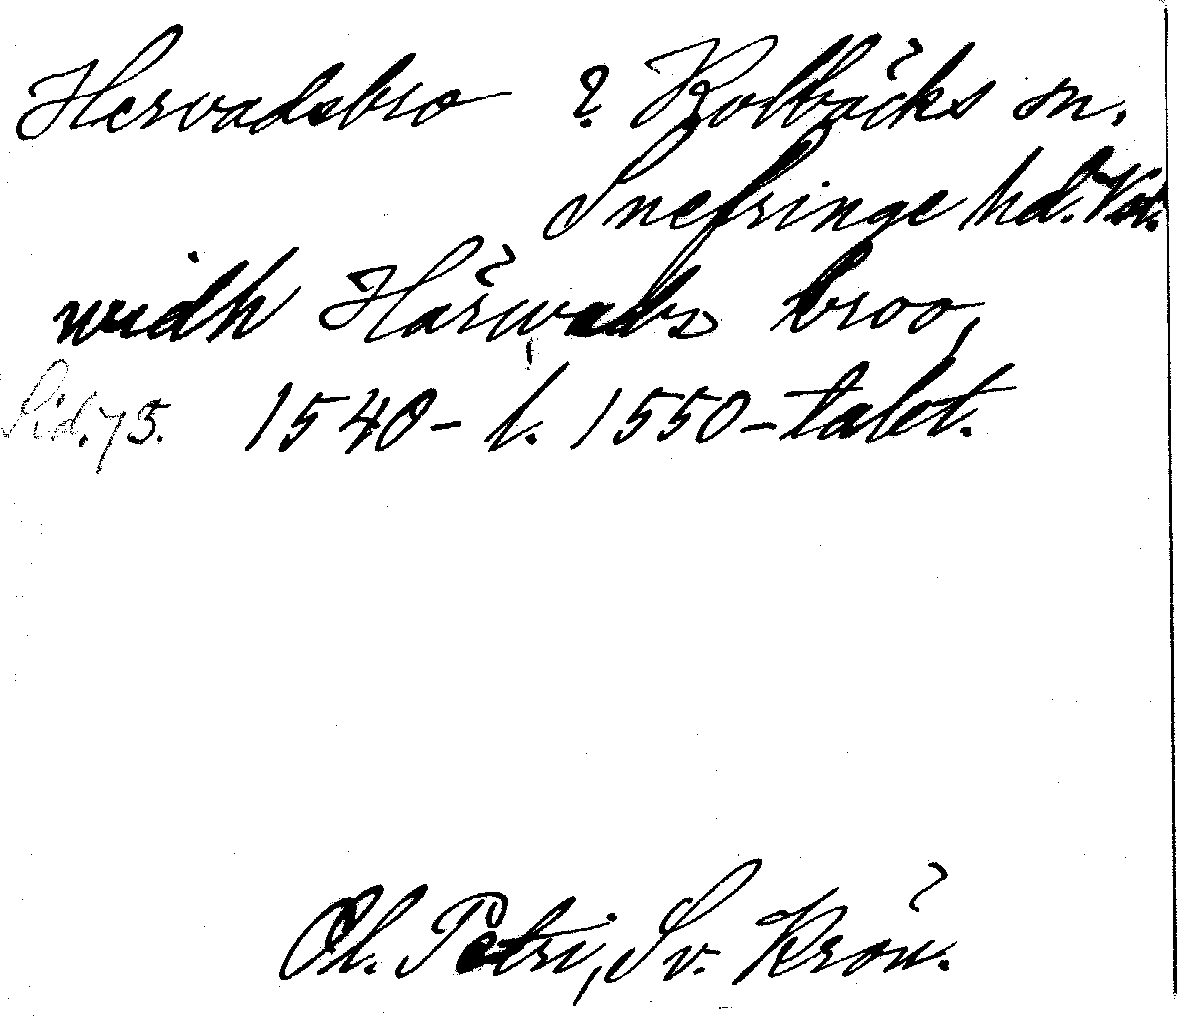 Hervadsbro ? Kolbäcks sn.
Snefringe hd. Vstm.
widh Härwadz broo,
Sid. 73. 1540- l. 1550-talet.
Ol. Petri, Sv. Krön.